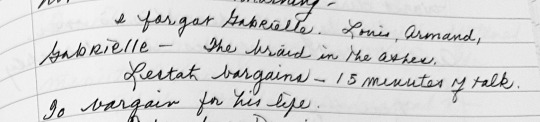 I forgot Gabrielle. Louis, Armand,
Gabrielle - The braid in the ashes.
Lestat bargains - 15 minutes of talk.
To bargain for his life.